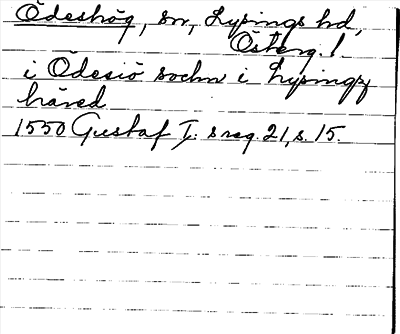 Ödeshög, sn, Lysings hd,
Österg. l.
i Ödesiö sochn i Lysingz
häred
1550 Gustaf I:s reg. 21, s. 15.